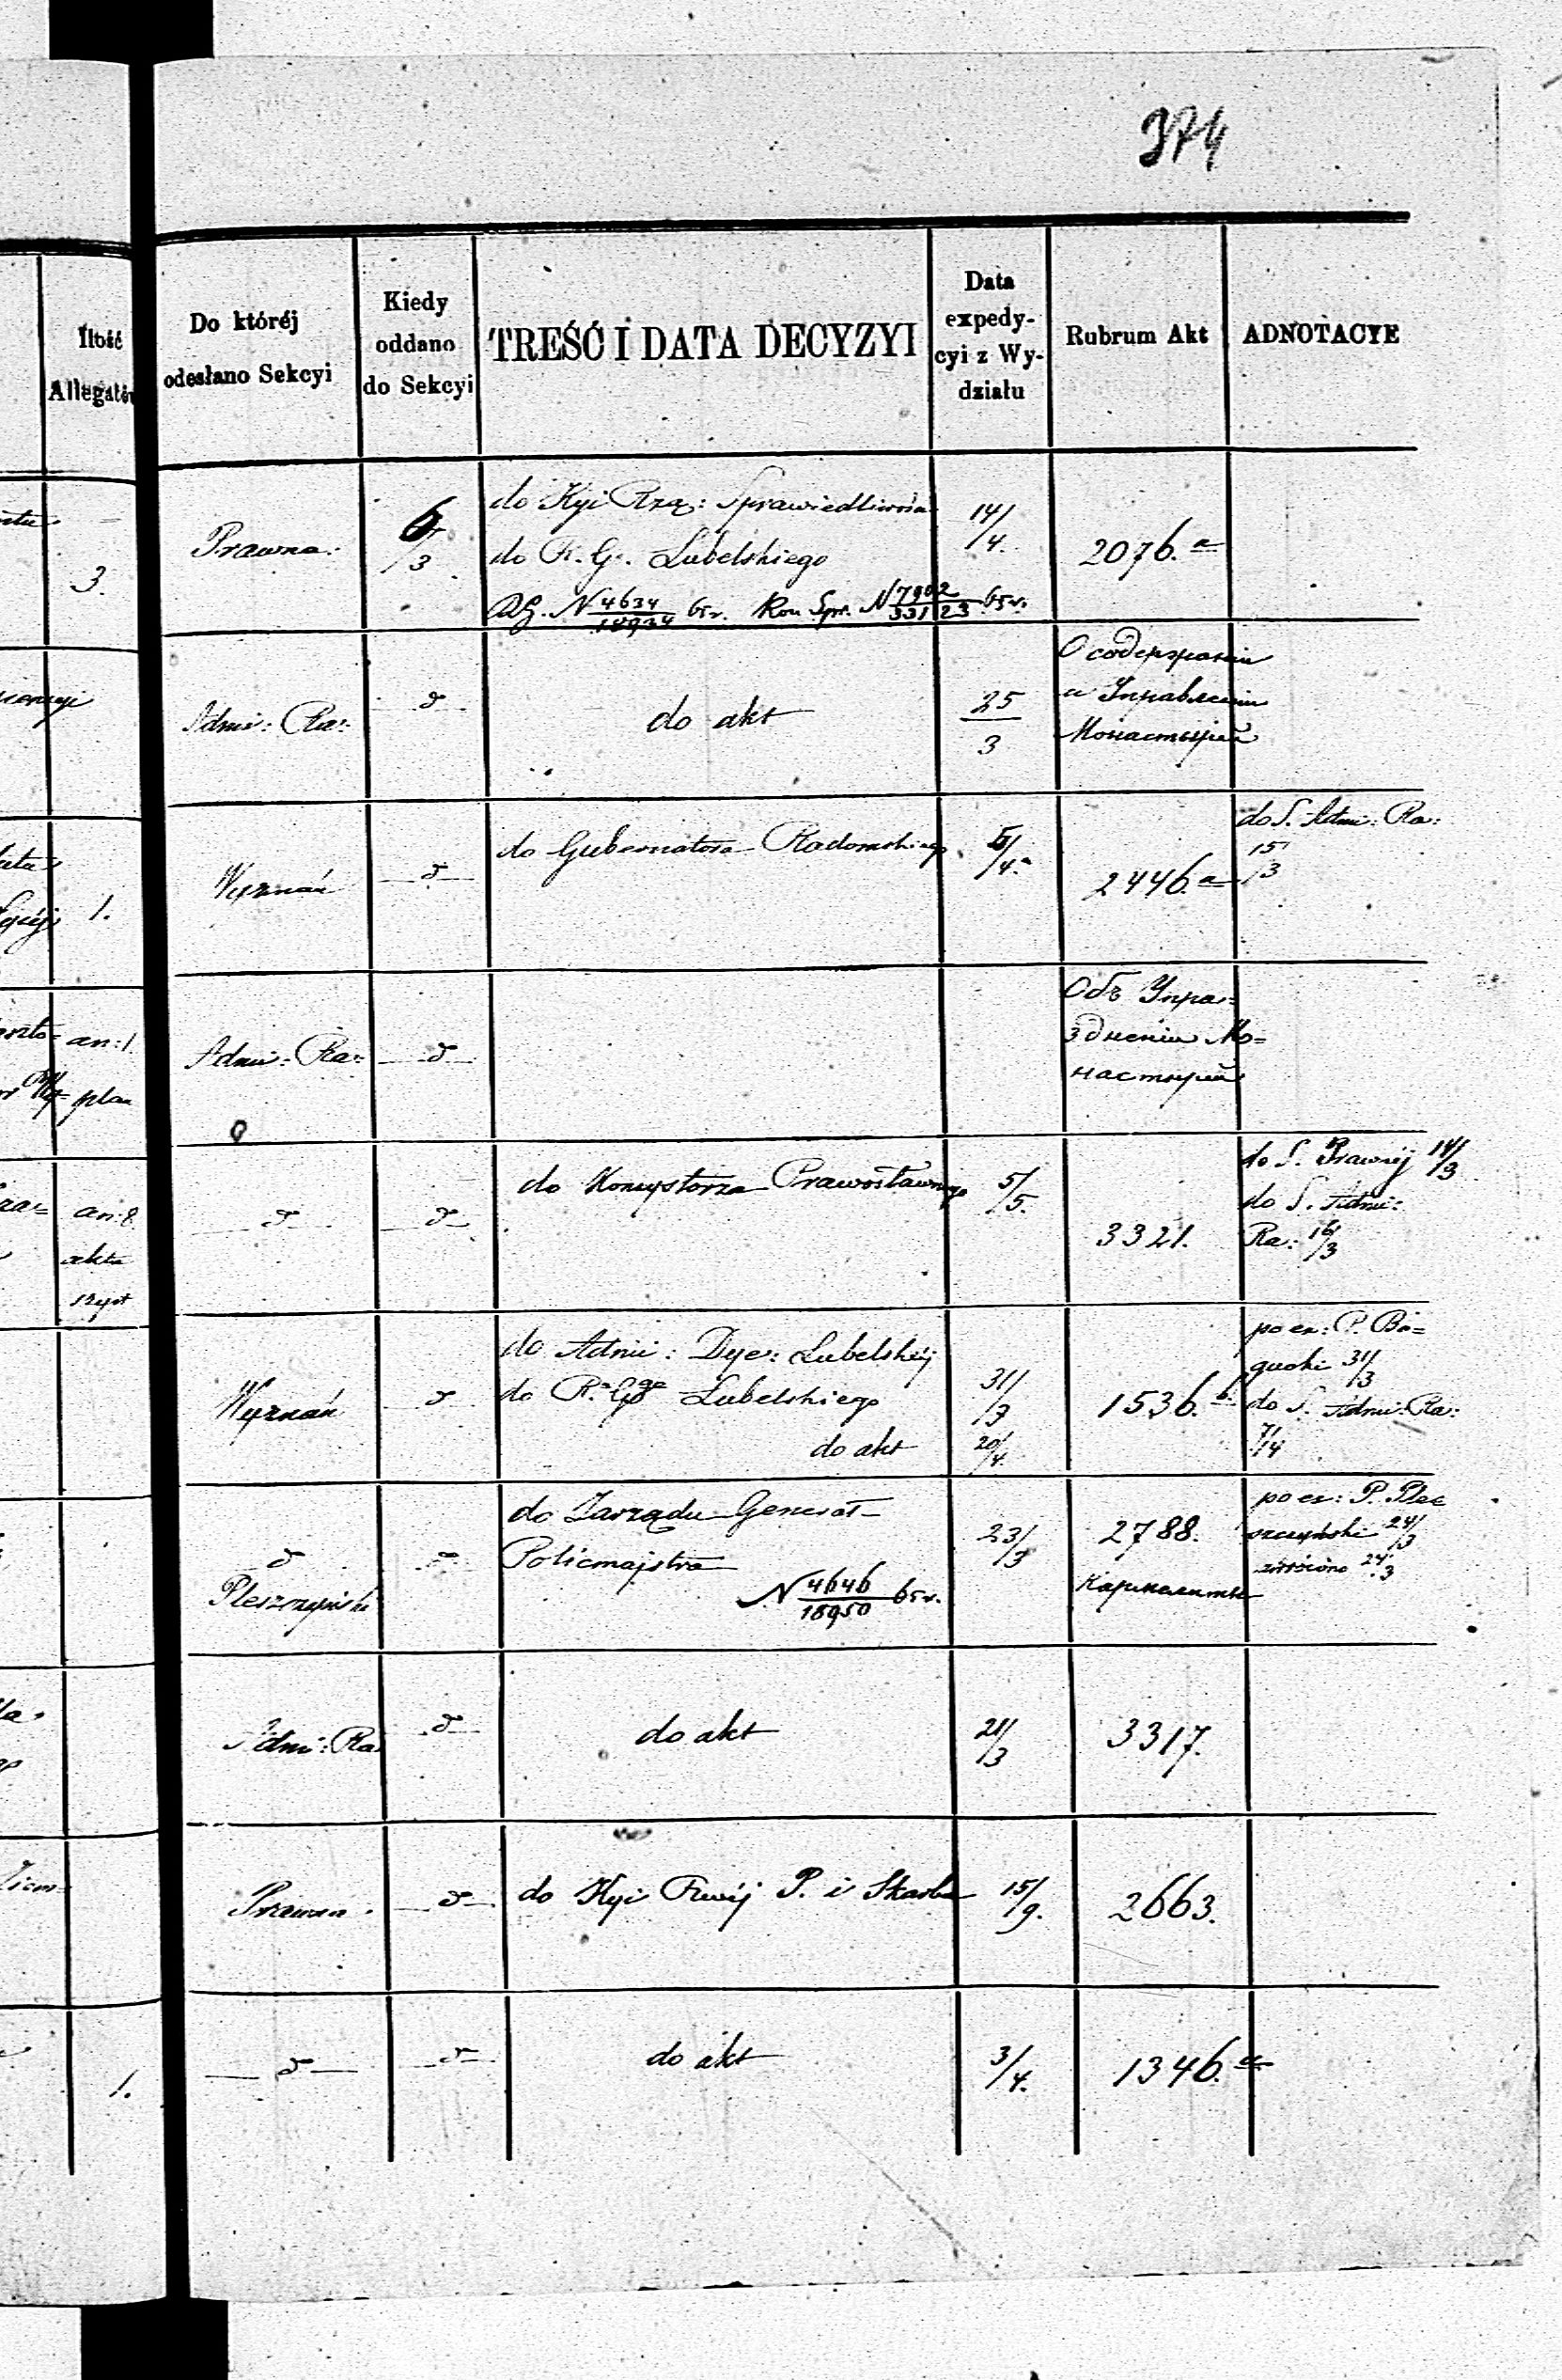 374
Ilość
Allegatów
Do któréj
odesłano Sekcyi
Kiedy
oddano
do Sekcyi
TREŚĆ I DATA DECYZYI
Data
expedy-
cyi z Wy-
działu
Rubrum Akt
ADNOTACYE
3.
Prawna:
6/3
do Kyi Rzą: Sprawiedliwości
do R. G. Lubelskiego
N 4634/18934 65r. Kom Spr. N 7902/33123 65r.
14/4.
2076.a
Admi: Ra:
d
do akt
25/3
О содержанiи
и Управленiи
Монастырей
1.
Wyznań
d
do Gubernatora Radomskiego
5/4.
2446.a
do S. Admi: Ra:
15/3
an:1.
plan
Admi: Ra:
d
Объ Упра=
здненiи Мо=
настырей
an:8.
akta
d
d
do Konsystorza Prawosławnego
5/5.
3321.
do S. Prawnéj 14/3
do S. Admi:
Ra: 16/3
Wyznań
d
do Admi: Dye: Lubelskiéj
do R. Ggo Lubelskiego
do akt
31/3
20/4.
1536.b.
po ex: P.
31/3
do S. Admi: Ra:
7/4
d
Pleszczyński
d
do Zarządu Generał
Policmajstra
N 4646/18950 65r.
23/3
2788.
Кармелиты
po ex: P. Plesz
czyński 24/3
zwrócono 24/3
Admi: Ra
d
do akt
21/3
3317.
Prawna.
d
do Kyi Rwéj P. i Skarbu
15/9.
2663.
1.
d
d
do akt
3/4.
1346.a